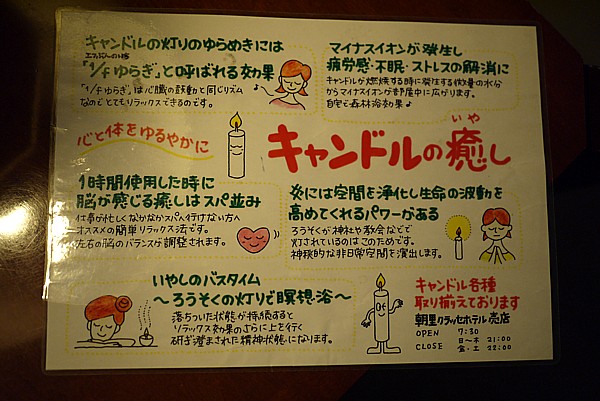 キャンドルの灯りのゆらめきには
エフぶんのいち
「1/fゆらぎ」と呼ばれる効果
「1/fゆらぎ」は心臓の鼓動と同じリズム
なのでとてもリラックスできるのです。
マイナスイオンが発生し
疲労感・不眠・ストレスの解消に
キャンドルが燃焼する時に発生する微量の水分
からマイナスイオンが部屋中に広がります。
自宅で森林浴効果♪
心と体をゆるやかに
いや
キャンドルの癒し
1時間使用した時に
脳が感じる癒しはスパ並み
仕事が忙しくなかなかスパへ行けない方へ
オススメの簡単リラックス法です。
左右の脳のバランスが調整されます。
炎には空間を浄化し生命の波動を
高めてくれるパワーがある
ろうそくが神社や教会などで
灯されているのはこのためです。
神秘的な非日常空間を演出します。
いやしのバスタイム
～ろうそくの灯りで瞑想浴～
落ちついた状態が持続すると
リラックス効果のさらに上を行く
研ぎ澄まされた精神状態になります。
キャンドル各種
取り揃えております
朝里クラッセホテル売店
OPEN 7:30
CLOSE 日～木 21:00
金・土 22:00